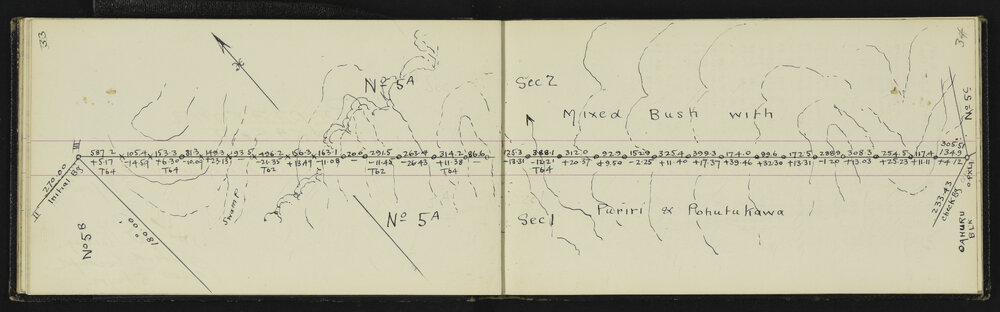 33
Nº 5A
III
587.2 105.4 153.3 81.3 149.3 93.5 496.2 56.3 163.1 200.0 291.5 263.4 314.2 86.6
+5.17 -14.51 +6.30 +23.13 -21.35 +13.49 -11.08 -11.43 -26.43 +11.38
T64 T64 T62 T62 T64
270.00
Initial Bg
II
Swamp
Nº 5B
180.00
Nº 5A
34
Sec 2
Mixed Bush with
Nº 5C
125.3 388.1 312.0 92.9 152.9 325.4 399.3 174.0 99.6 172.5 288.9 308.3 254.5 117.4 134.9
-13.31 -16.21 +20.37 +9.50 -2.25 +11.40 +17.37 +39.46 +32.30 +13.31 -1.20 +13.03 +25.23 +11.11 +4.12
T64
Sec 1
Puriri & Pohutukawa
233.43
check Bg
OAHURU
BLK